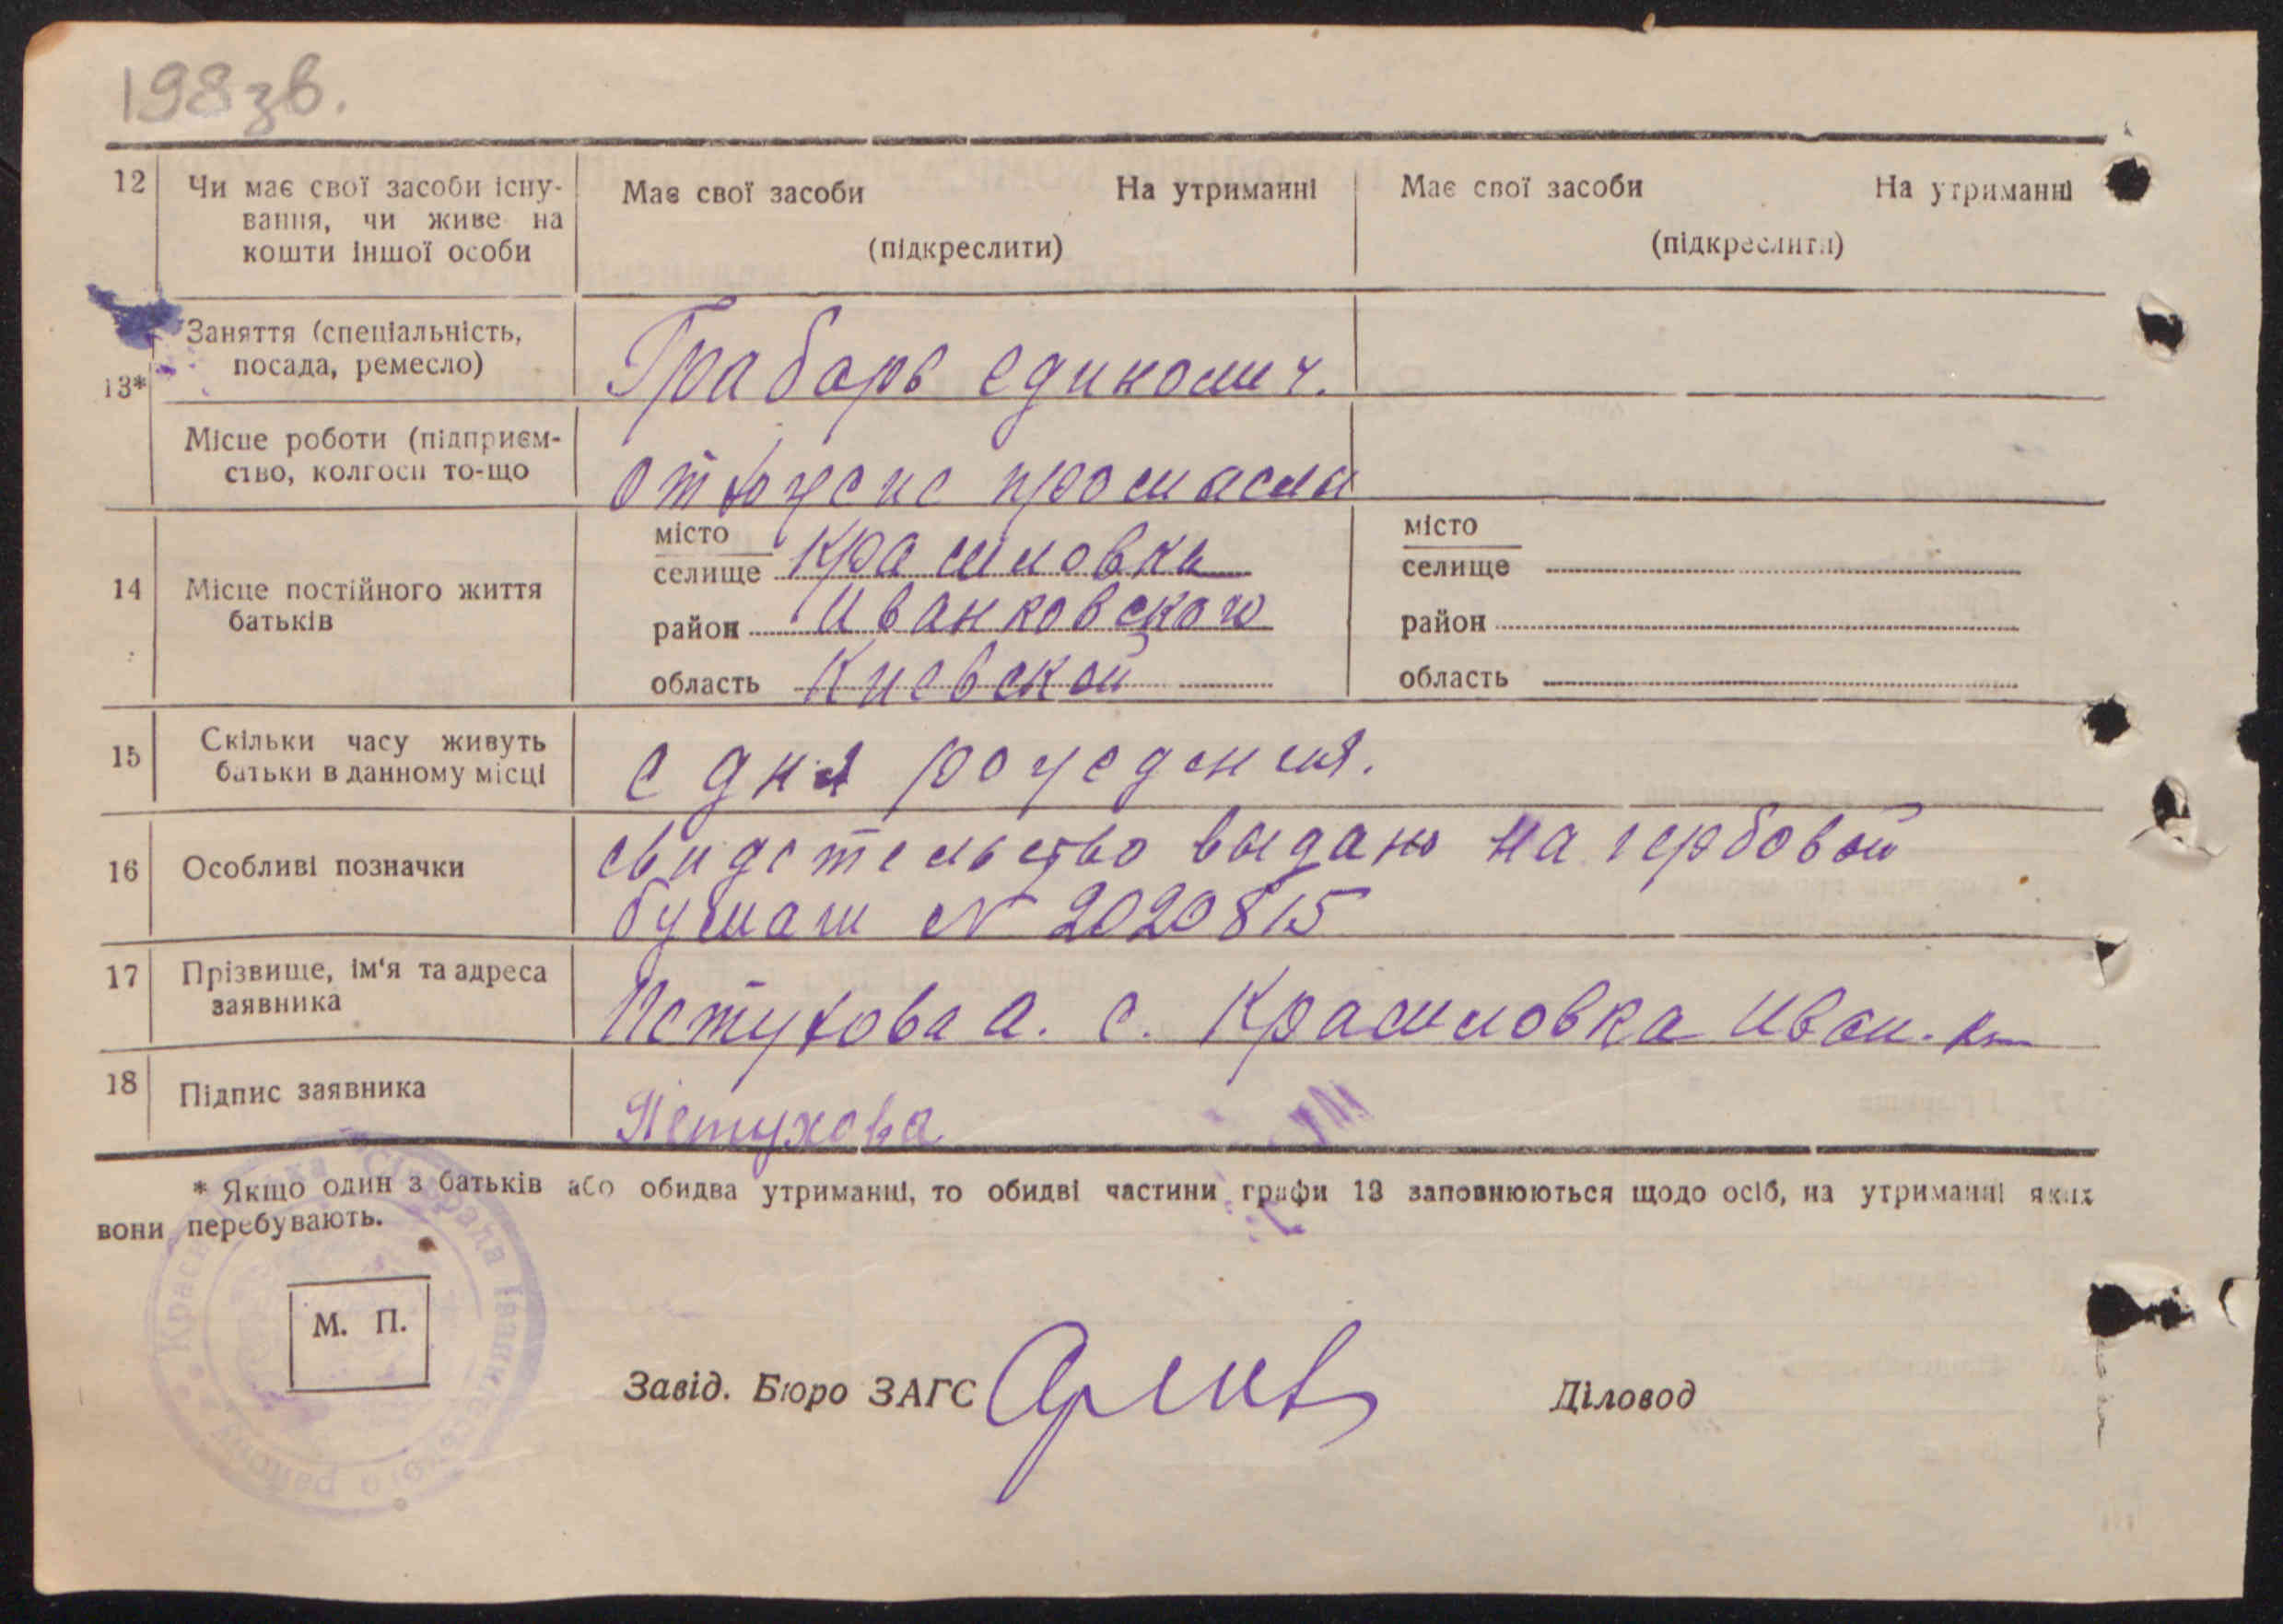 198 зв.
12 Чи має свої засоби існу-
вання, чи живе на
кошти іншої особи
Має свої засоби На утриманні
(підкреслити)
Має свої засоби На утриманні
(підкреслити)
13*
Заняття (спеціальність,
посада, ремесло)
Грабарь единолич.
Місце роботи (підприєм-
ство, колгосп то-що
14 Місце постійного життя
батьків
місто
селище Красиловка
район Иванковского
область Киевской
місто
селище
район
область
15 Скільки часу живуть
батьки в данному місці
с дня рождения.
16 Особливі позначки
свидетельство выдано на гербовой
бумаги № 2020815
17 Прізвище, ім'я та адреса
заявника
Петухова А. с. Красиловка Иван.
18 Підпис заявника
Петухова
* Якщо один з батьків або обидва утриманні, то обидві частини графи 13 заповнюються щодо осіб, на утриманні яких
вони перебувають.
М. П.
Завід. Бюро ЗАГС
Діловод